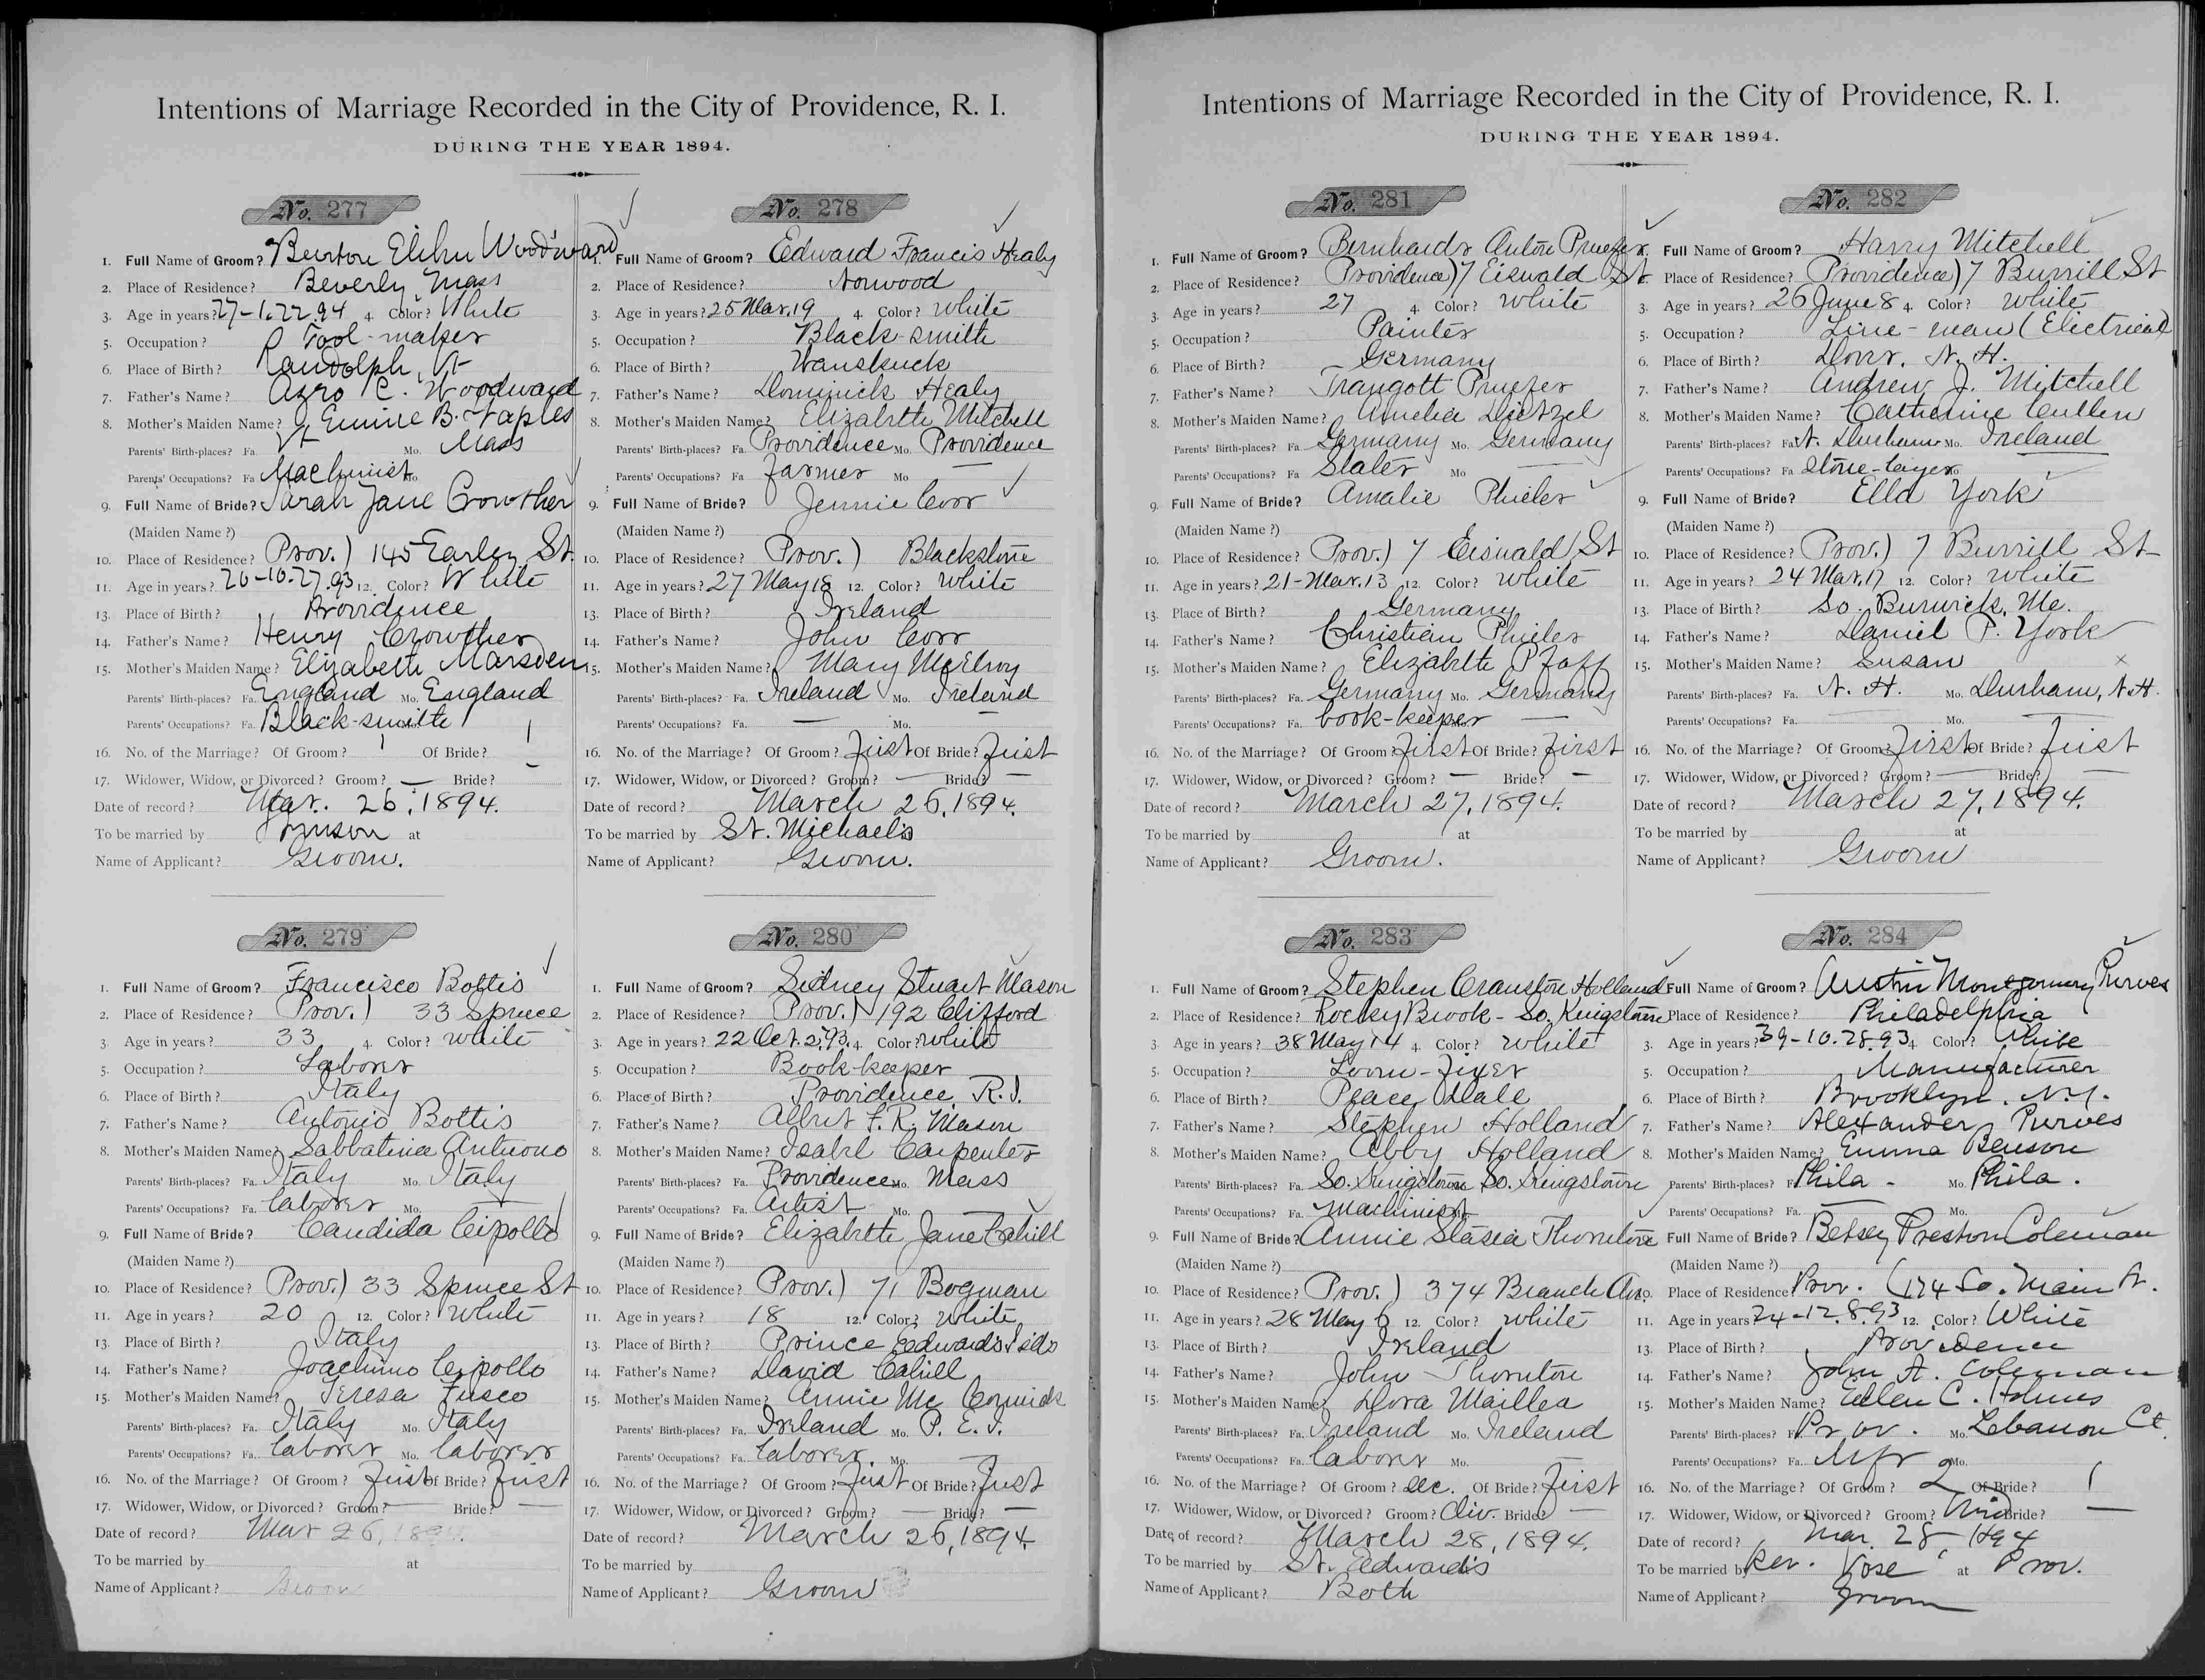 Intentions of Marriage Recorded in the City of Providence, R. I.
DURING THE YEAR 1894.
No. 277
1. Full Name of Groom? Burton Elihu Woodward
2. Place of Residence? Beverly Mass
3. Age in years? 27-1.22.94 4. Color? White
5. Occupation? Tool-maker
6. Place of Birth? Randolph, Vt
7. Father's Name? Azro C. Woodward
8. Mother's Maiden Name? Emine B. Naples
Parents' Birth-places? Fa. Vt Mo. Mass
Parents' Occupations? Fa Machinist Mo
9. Full Name of Bride? Sarah Jane Crowther
(Maiden Name?)
10. Place of Residence? Prov.) 145 Earley St.
11. Age in years? 20-10.27.93 12. Color? White
13. Place of Birth? Providence
14. Father's Name? Henry Crowther
15. Mother's Maiden Name? Elizabeth Marsden
Parents' Birth-places? Fa. England Mo. England
Parents' Occupations? Fa. Black-smith Mo.
16. No. of the Marriage? Of Groom? 1 Of Bride? 1
17. Widower, Widow, or Divorced? Groom? — Bride? —
Date of record? Mar. 26, 1894.
To be married by at
Name of Applicant? Groom.
No. 278
1. Full Name of Groom? Edward Francis Healy
2. Place of Residence? Norwood
3. Age in years? 25 Mar. 19 4. Color? White
5. Occupation? Black-smith
6. Place of Birth? Wanskuck
7. Father's Name? Dominick Healy
8. Mother's Maiden Name? Elizabeth Mitchell
Parents' Birth-places? Fa. Providence Mo. Providence
Parents' Occupations? Fa farmer Mo —
9. Full Name of Bride? Jennie Corr
(Maiden Name?)
10. Place of Residence? Prov.) Blackstone
11. Age in years? 27 May 18 12. Color? White
13. Place of Birth? Ireland
14. Father's Name? John Corr
15. Mother's Maiden Name? Mary McElroy
Parents' Birth-places? Fa. Ireland Mo. Ireland
Parents' Occupations? Fa. — Mo. —
16. No. of the Marriage? Of Groom? First Of Bride? First
17. Widower, Widow, or Divorced? Groom? — Bride? —
Date of record? March 26, 1894.
To be married by St. Michael's
Name of Applicant? Groom.
No. 279
1. Full Name of Groom? Francisco Bottis
2. Place of Residence? Prov.) 33 Spruce
3. Age in years? 33 4. Color? White
5. Occupation? Laborer
6. Place of Birth? Italy
7. Father's Name? Antonio Bottis
8. Mother's Maiden Name? Sabbatina Antuono
Parents' Birth-places? Fa. Italy Mo. Italy
Parents' Occupations? Fa. laborer Mo. —
9. Full Name of Bride? Candida Cipollo
(Maiden Name?)
10. Place of Residence? Prov.) 33 Spruce St
11. Age in years? 20 12. Color? White
13. Place of Birth? Italy
14. Father's Name? Joachimo Cipollo
15. Mother's Maiden Name? Teresa Fusco
Parents' Birth-places? Fa. Italy Mo. Italy
Parents' Occupations? Fa. laborer Mo. laborer
16. No. of the Marriage? Of Groom? First Of Bride? First
17. Widower, Widow, or Divorced? Groom? — Bride? —
Date of record? Mar 26, 1894.
To be married by at
Name of Applicant? Groom
No. 280
1. Full Name of Groom? Sidney Stuart Mason
2. Place of Residence? Prov.) 192 Clifford
3. Age in years? 22 Oct. 2, 93. 4. Color? White
5. Occupation? Book-keeper
6. Place of Birth? Providence, R.I.
7. Father's Name? Albert F. R. Mason
8. Mother's Maiden Name? Isabel Carpenter
Parents' Birth-places? Fa. Providence Mo. Mass
Parents' Occupations? Fa. Artist Mo.
9. Full Name of Bride? Elizabeth Jane Cahill
(Maiden Name?)
10. Place of Residence? Prov.) 71 Bogman
11. Age in years? 18 12. Color? White
13. Place of Birth? Prince Edward's Isd.
14. Father's Name? David Cahill
15. Mother's Maiden Name? Annie Mc Cormick
Parents' Birth-places? Fa. Ireland Mo. P. E. I.
Parents' Occupations? Fa. laborer. Mo. —
16. No. of the Marriage? Of Groom? First Of Bride? First
17. Widower, Widow, or Divorced? Groom? — Bride? —
Date of record? March 26, 1894
To be married by
Name of Applicant? Groom
Intentions of Marriage Recorded in the City of Providence, R. I.
DURING THE YEAR 1894.
No. 281
1. Full Name of Groom? Bernhardt Anton Pruefer
2. Place of Residence? Providence) 7 Eiswald St
3. Age in years? 27 4. Color? White
5. Occupation? Painter
6. Place of Birth? Germany
7. Father's Name? Traugott Pruefer
8. Mother's Maiden Name? Amelia Dietzel
Parents' Birth-places? Fa. Germany Mo. Germany
Parents' Occupations? Fa Slater Mo —
9. Full Name of Bride? Amalie Phieler
(Maiden Name?)
10. Place of Residence? Prov.) 7 Eiswald St
11. Age in years? 21-Mar. 13 12. Color? White
13. Place of Birth? Germany
14. Father's Name? Christian Phieler
15. Mother's Maiden Name? Elizabeth Pfaff
Parents' Birth-places? Fa. Germany Mo. Germany
Parents' Occupations? Fa. book-keeper Mo. —
16. No. of the Marriage? Of Groom? First Of Bride? First
17. Widower, Widow, or Divorced? Groom? — Bride? —
Date of record? March 27, 1894.
To be married by at
Name of Applicant? Groom.
No. 282
1. Full Name of Groom? Harry Mitchell
2. Place of Residence? Providence) 7 Burrill St
3. Age in years? 26 June 8 4. Color? White
5. Occupation? Line-man (Electrical)
6. Place of Birth? Dover, N. H.
7. Father's Name? Andrew J. Mitchell
8. Mother's Maiden Name? Catherine Cullen
Parents' Birth-places? Fa. N. Durham Mo. Ireland
Parents' Occupations? Fa stone-layer Mo —
9. Full Name of Bride? Ella York
(Maiden Name?)
10. Place of Residence? Prov.) 7 Burrill St
11. Age in years? 24 Mar. 17 12. Color? White
13. Place of Birth? So. Burwick, Me.
14. Father's Name? Daniel P. York
15. Mother's Maiden Name? Susan x
Parents' Birth-places? Fa. N. H. Mo. Durham, N.H.
Parents' Occupations? Fa. — Mo. —
16. No. of the Marriage? Of Groom? First Of Bride? First
17. Widower, Widow, or Divorced? Groom? — Bride? —
Date of record? March 27, 1894.
To be married by at
Name of Applicant? Groom
No. 283
1. Full Name of Groom? Stephen Cranston Holland
2. Place of Residence? Rocky Brook - So. Kingstown
3. Age in years? 38 May 14 4. Color? White
5. Occupation? Loom-Fixer
6. Place of Birth? Peace Dale
7. Father's Name? Stephen Holland
8. Mother's Maiden Name? Abby Holland
Parents' Birth-places? Fa. So. Kingstown Mo. So. Kingstown
Parents' Occupations? Fa. machinist Mo.
9. Full Name of Bride? Annie Stasia Thornton
(Maiden Name?)
10. Place of Residence? Prov.) 374 Branch Av.
11. Age in years? 28 May 6 12. Color? White
13. Place of Birth? Ireland
14. Father's Name? John Thornton
15. Mother's Maiden Name? Dora Maillea
Parents' Birth-places? Fa. Ireland Mo. Ireland
Parents' Occupations? Fa. laborer Mo.
16. No. of the Marriage? Of Groom? Sec. Of Bride? First
17. Widower, Widow, or Divorced? Groom? div. Bride? —
Date of record? March 28, 1894.
To be married by St. Edward's
Name of Applicant? Both
No. 284
Full Name of Groom? Austin Montgomery Purves
Place of Residence? Philadelphia
3. Age in years? 39-10.28.93 4. Color? White
5. Occupation? Manufacturer
6. Place of Birth? Brooklyn. N.Y.
7. Father's Name? Alexander Purves
8. Mother's Maiden Name? Emma Benson
Parents' Birth-places? Fa. Phila - Mo. Phila.
Parents' Occupations? Fa. — Mo.
Full Name of Bride? Betsey Preston Coleman
(Maiden Name?)
10. Place of Residence? Prov. (174 So. Main St.
11. Age in years? 24-12.8.93 12. Color? White
13. Place of Birth? Providence
14. Father's Name? John A. Coleman
15. Mother's Maiden Name? Ellen C. Holmes
Parents' Birth-places? Fa. Prov. Mo. Lebanon Ct.
Parents' Occupations? Fa. Mfr Mo.
16. No. of the Marriage? Of Groom? 2 Of Bride? 1
17. Widower, Widow, or Divorced? Groom? Wid Bride? —
Date of record? Mar. 28, 1894
To be married by Rev. Vose at Prov.
Name of Applicant? Groom